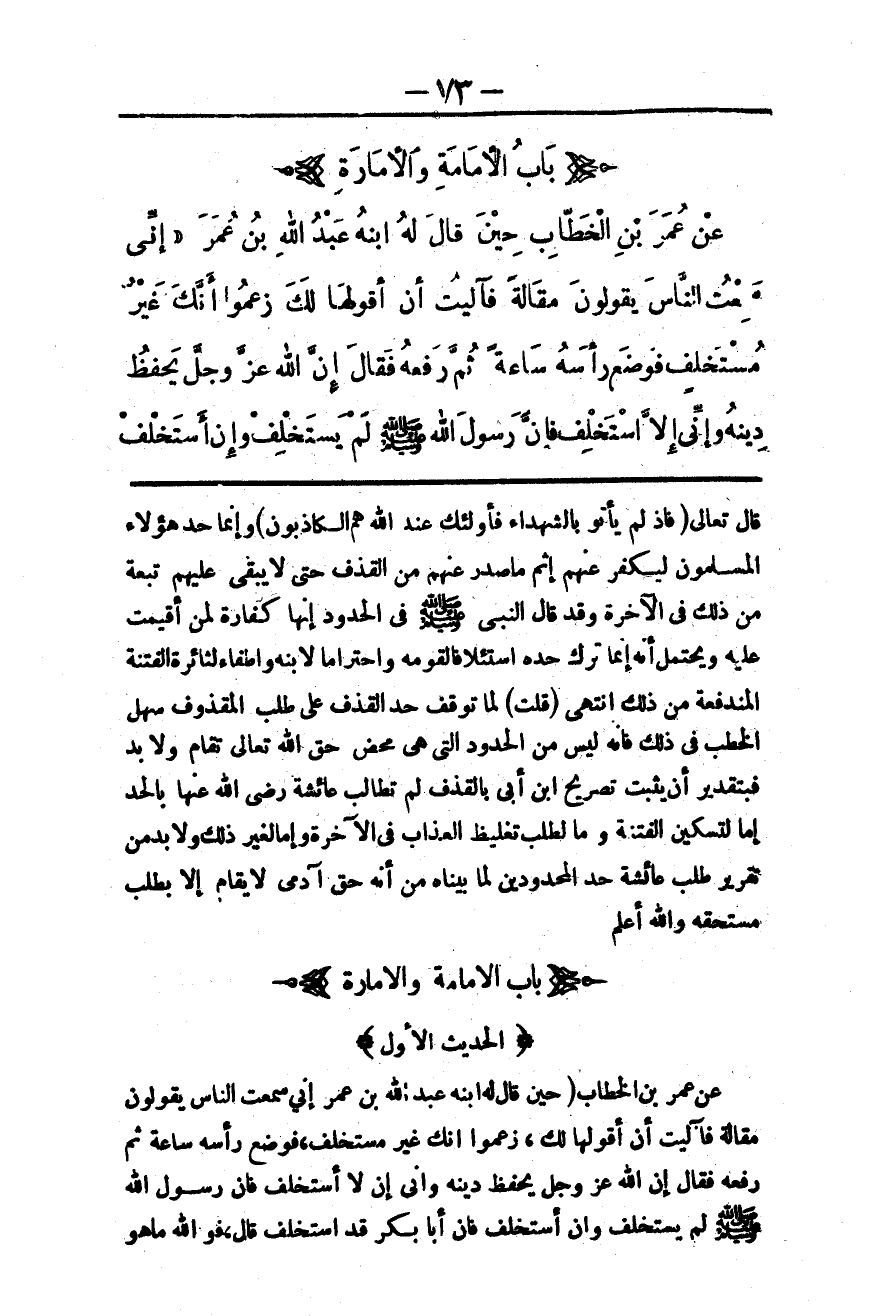 — ٧٣ —
بَابُ الْأَمَامَةِ وَالْأَمَارَةِ
عَنْ عُمَرَ بْنِ الْخَطَّابِ حِيْنَ قالَ لهُ ابنهُ عَبْدُ اللهِ بنُ عُمَرَ « إنِّى
سَمِعْتُ النَّاسَ يقولونَ مقالةً فآليتُ أن أقولهَا لكَ زعمُوا أَنَّكَ غَيْرُ
مُسْتَخلفٍ فوضَع رأسَهُ سَاعةً ثُمَّ رَفعهُ فقَالَ إِنَّ اللهَ عزَّ وجلَّ يَحفظُ
دِينهُ وإنِّى إلاَّ اسْتَخْلِف فإنَّ رسولَ الله ﷺ لَمْ يَستَخلِفْ وإن أَستَخْلفْ
قال تعالى ( فاذ لم يأتو بالشهداء فأولئك عند الله هم الكاذبون ) وإنما حد هؤلاء
المسلمون ليكفر عنهم إثم ماصدر عنهم من القذف حتى لا يبقى عليهم تبعة
من ذلك فى الآخرة وقد قال النبى ﷺ فى الحدود إنها كفارة لمن أقيمت
عليه ويحتمل أنه إنما ترك حده استئلافا لقومه واحتراما لابنه واطفاء لنائرة الفتنة
المندفعة من ذلك انتهى (قلت) لما توقف حد القذف على طلب المقذوف سهل
الخطب فى ذلك فانه ليس من الحدود التى هى محض حق الله تعالى تقام ولا بد
فبتقدير أن يثبت تصريح ابن أبى بالقذف لم تطالب عائشة رضى الله عنها بالحد
إما لتسكين الفتنة و ما لطلب تغليظ العذاب فى الآخرة وإما لغير ذلك ولا بد من
تقرير طلب عائشة حد المحدودين لما بيناه من أنه حق آدمى لا يقام إلا بطلب
مستحقه والله أعلم
باب الامامة والامارة
﴿ الحديث الأول ﴾
عن عمر بن الخطاب ( حين قال له ابنه عبد الله بن عمر إني سمعت الناس يقولون
مقالة فآليت أن أقولها لك ، زعموا انك غير مستخلف، فوضع رأسه ساعة ثم
رفعه فقال إن الله عز وجل يحفظ دينه وانى إن لا أستخلف فان رسول الله
ﷺ لم يستخلف وان أستخلف فان أبا بكر قد استخلف قال، فو الله ماهو